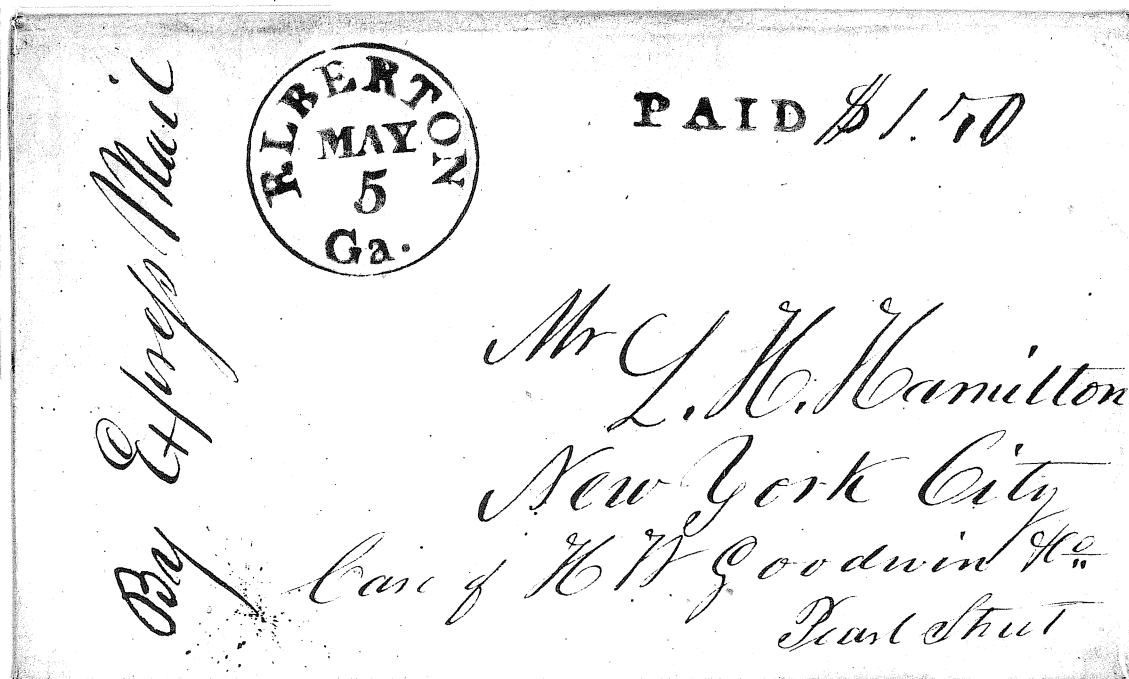 By Express Mail
RLBERTON
MAY
5
Ga.
PAID $1.50
Mr L. H. Hamilton
New York City
Care of H W Goodwin & Co
Pearl Street